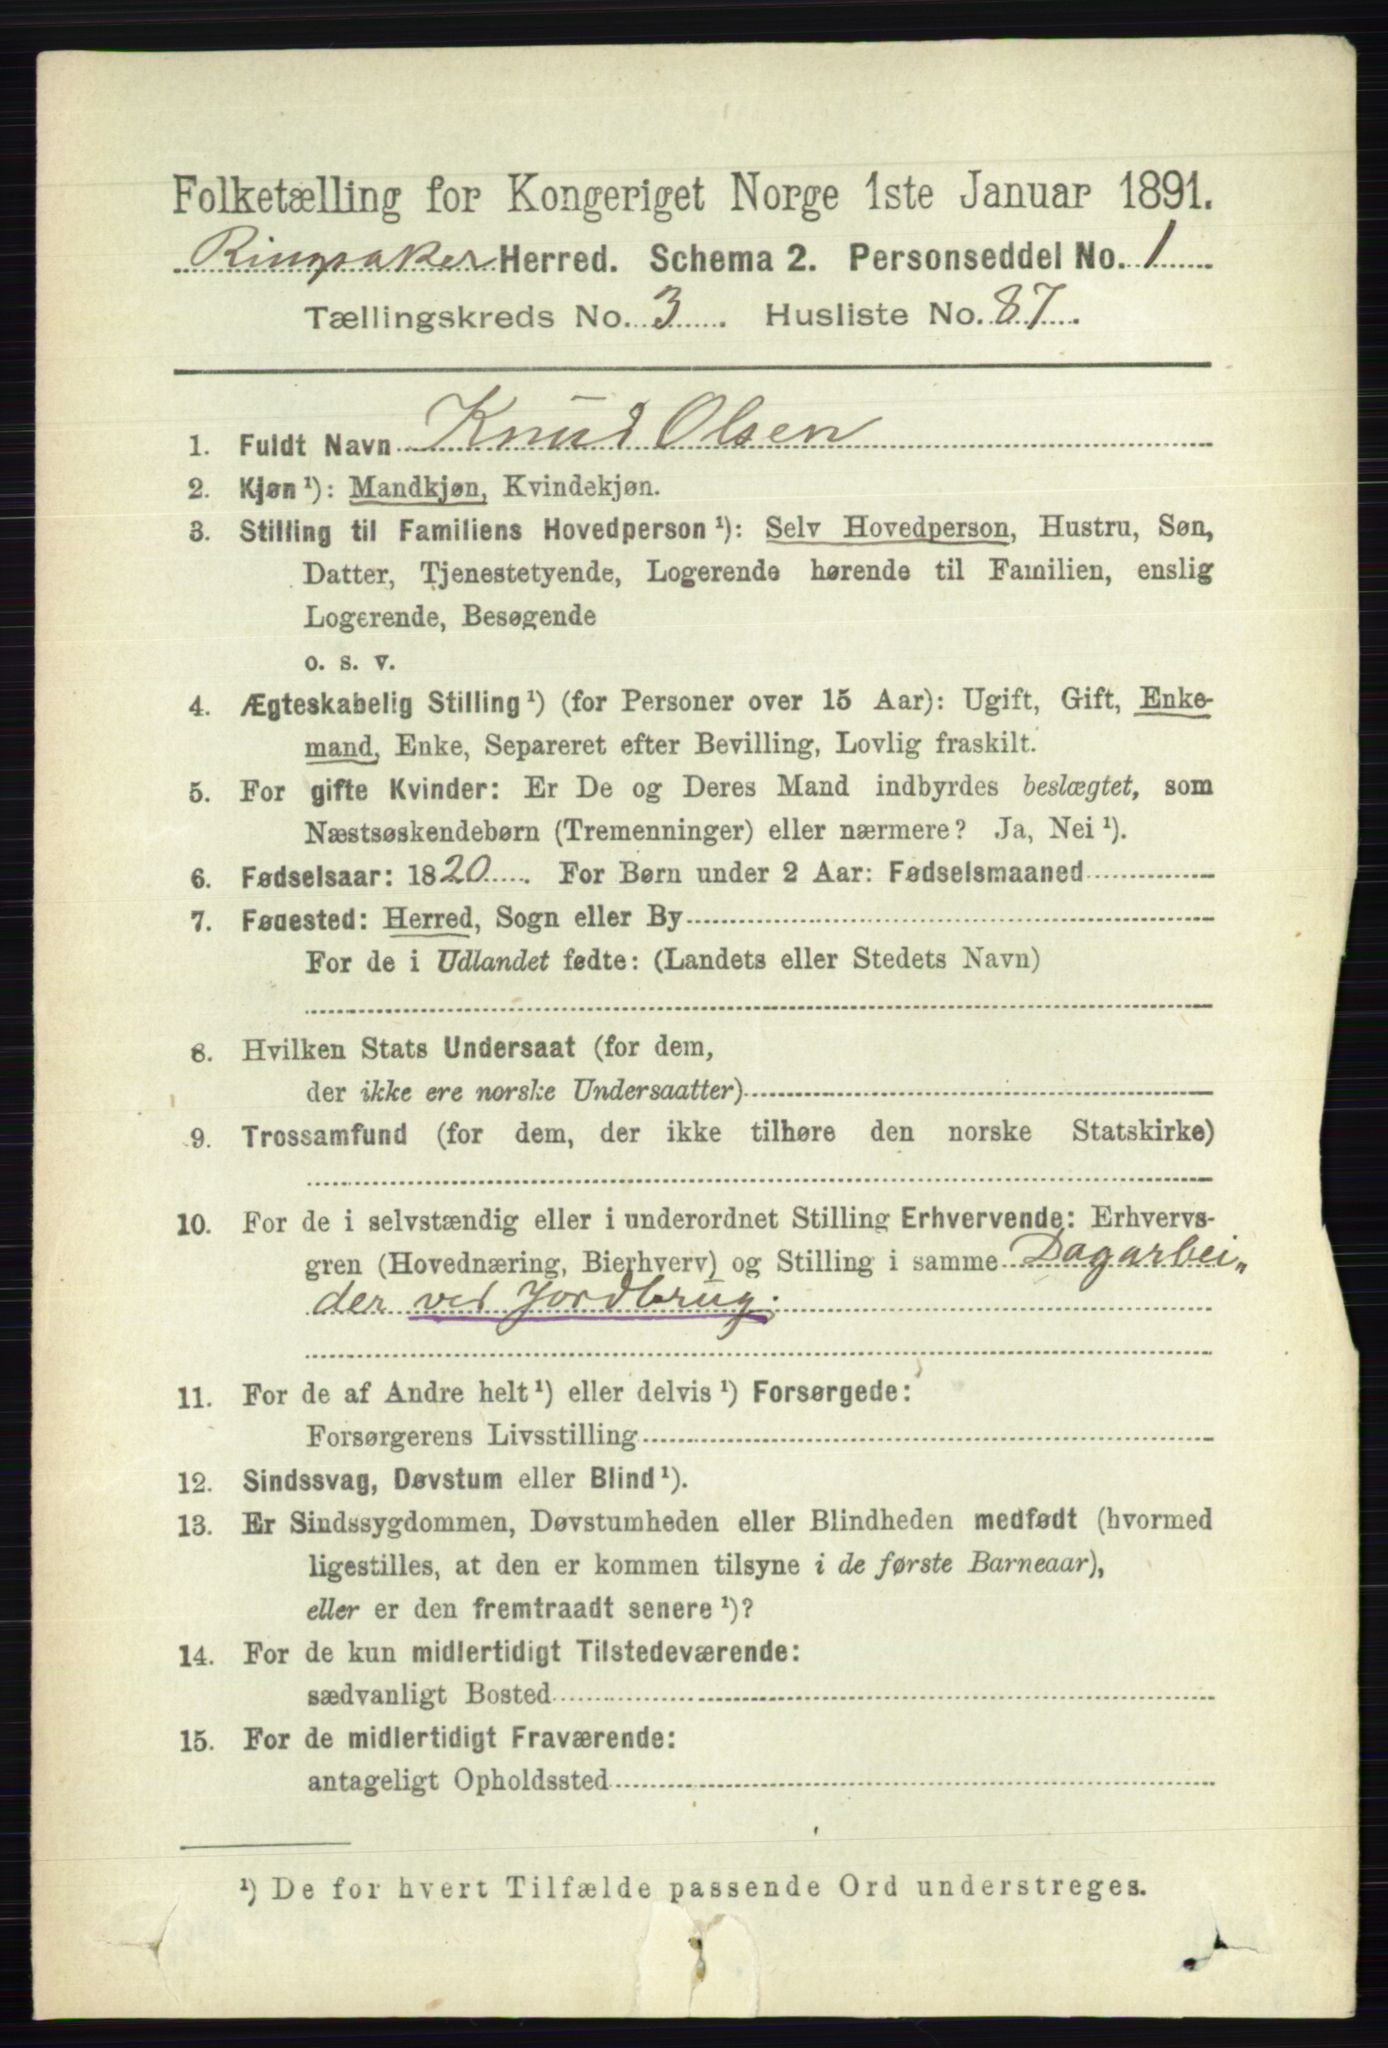 Folketælling for Kongeriget Norge 1ste Januar 1891.
Ringsaker Herred. Schema 2. Personseddel No. 1
Tællingskreds No. 3. Husliste No. 87.
1. Fuldt Navn Knud Olsen
2. Kjøn ¹): Mandkjøn, Kvindekjøn.
3. Stilling til Familiens Hovedperson ¹): Selv Hovedperson, Hustru, Søn,
Datter, Tjenestetyende, Logerende hørende til Familien, enslig
Logerende, Besøgende
o. s. v.
4. Ægteskabelig Stilling ¹) (for Personer over 15 Aar): Ugift, Gift, Enke-
mand, Enke, Separeret efter Bevilling, Lovlig fraskilt.
5. For gifte Kvinder: Er De og Deres Mand indbyrdes beslægtet, som
Næstsøskendebørn (Tremenninger) eller nærmere? Ja, Nei ¹).
6. Fødselsaar: 1820. For Børn under 2 Aar: Fødselsmaaned
7. Fødested: Herred, Sogn eller By
For de i Udlandet fødte: (Landets eller Stedets Navn)
8. Hvilken Stats Undersaat (for dem,
der ikke ere norske Undersaatter)
9. Trossamfund (for dem, der ikke tilhøre den norske Statskirke)
10. For de i selvstændig eller i underordnet Stilling Erhvervende: Erhvervs-
gren (Hovednæring, Bierhverv) og Stilling i samme Dagarbei„
der ved Jordbrug.
11. For de af Andre helt ¹) eller delvis ¹) Forsørgede:
Forsørgerens Livsstilling
12. Sindssvag, Døvstum eller Blind ¹).
13. Er Sindssygdommen, Døvstumheden eller Blindheden medfødt (hvormed
ligestilles, at den er kommen tilsyne i de første Barneaar),
eller er den fremtraadt senere ¹)?
14. For de kun midlertidigt Tilstedeværende:
sædvanligt Bosted
15. For de midlertidigt Fraværende:
antageligt Opholdssted
¹) De for hvert Tilfælde passende Ord understreges.